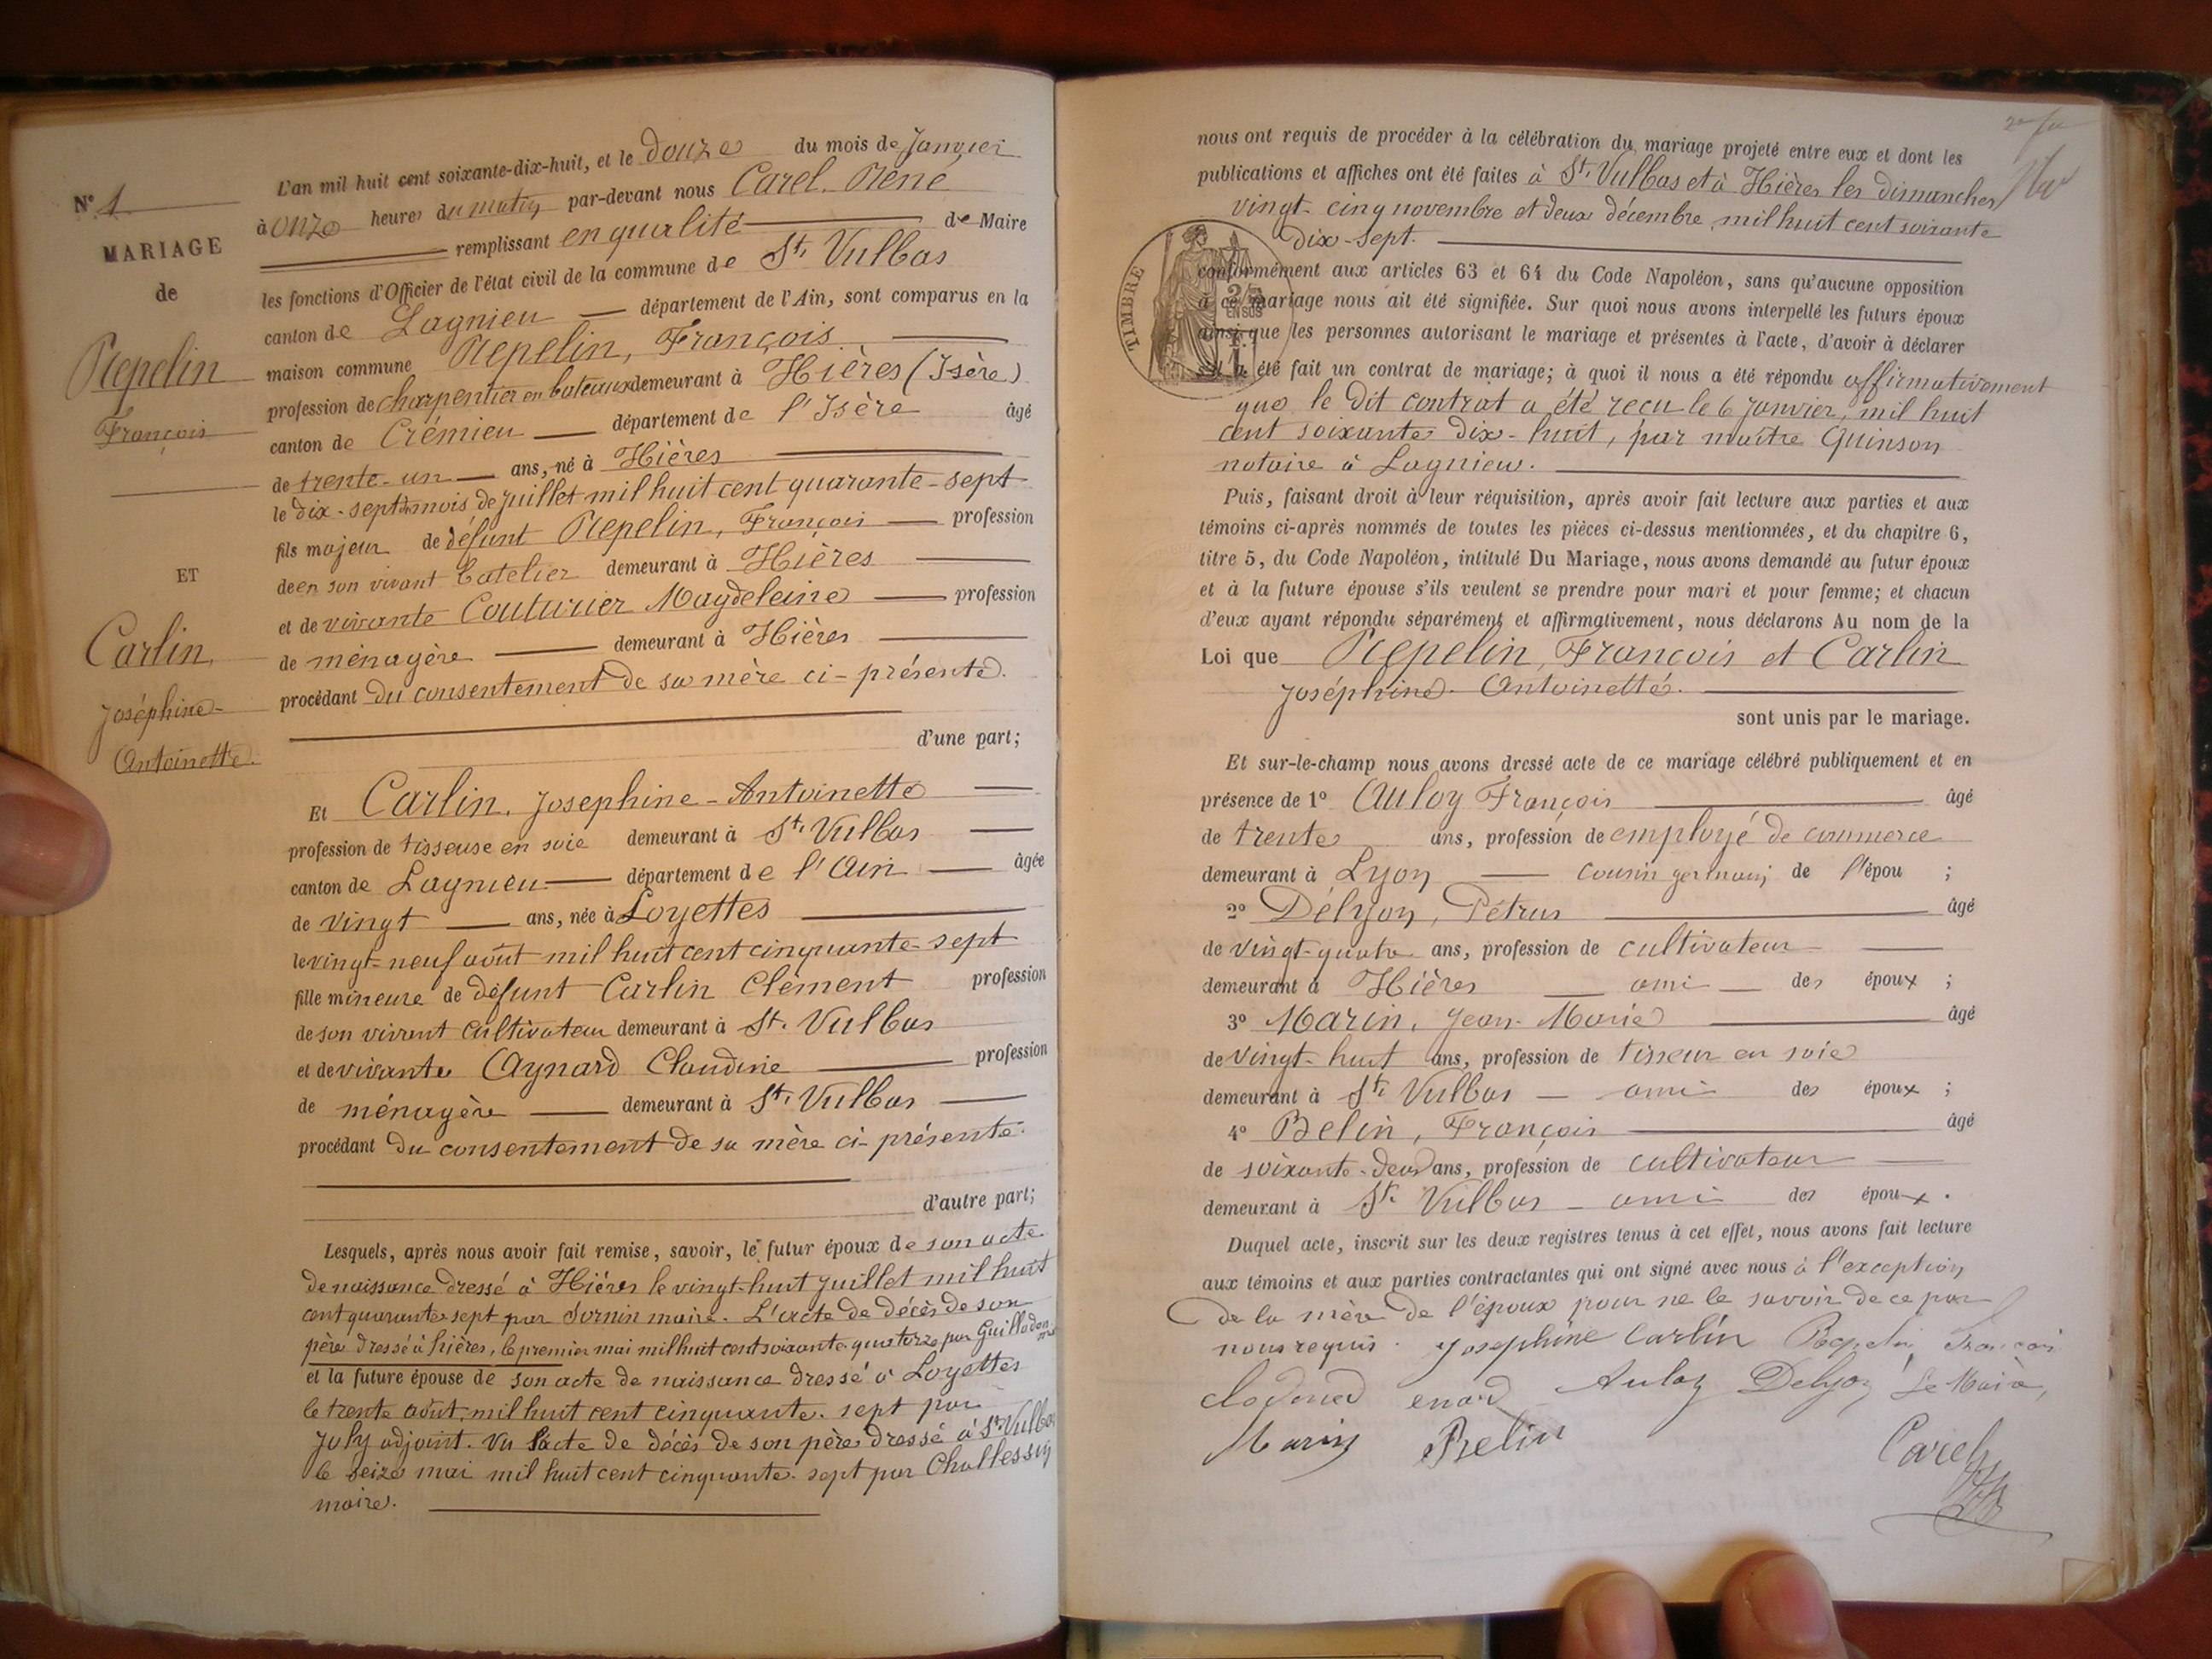 N° 1
MARIAGE
de
Repelin
François
ET
Carlin,
Joséphine-
Antoinette.
L'an mil huit cent soixante-dix-huit, et le douze du mois de Janvier
à onze heures du matin par-devant nous Carel René
remplissant en qualité de Maire
les fonctions d'Officier de l'état civil de la commune de St. Vulbas
canton de Lagnieu département de l'Ain, sont comparus en la
maison commune Repelin, François
profession de charpentier en bateaux demeurant à Hières (Isère)
canton de Crémieu département de l'Isère âgé
de trente-un ans, né à Hières
le dix-sept du mois de juillet mil huit cent quarante-sept
fils majeur de défunt Repelin, François profession
de en son vivant batelier demeurant à Hières
et de vivante Couturier Magdeleine profession
de ménagère demeurant à Hières
procédant du consentement de sa mère ci-présente.
d'une part;
Et Carlin, Josephine-Antoinette
profession de tisseuse en soie demeurant à St. Vulbas
canton de Lagnieu département de l'Ain âgée
de vingt ans, née à Loyettes
le vingt-neuf août mil huit cent cinquante-sept
fille mineure de défunt Carlin Clément profession
de son vivant cultivateur demeurant à St. Vulbas
et de vivante Aynard Claudine profession
de ménagère demeurant à St. Vulbas
procédant du consentement de sa mère ci-présente.
d'autre part;
Lesquels, après nous avoir fait remise, savoir, le futur époux de son acte
de naissance dressé à Hières le vingt-huit juillet mil huit
cent quarante sept par Sornin maire. L'acte de décès de son
père dressé à hières, le premier mai mil huit cent soixante quatorze par Guillodon
et la future épouse de son acte de naissance dressé à Loyettes
le trente août, mil huit cent cinquante-sept par
July adjoint. Vu l'acte de décès de son père dressé à St. Vulbas
le seize mai mil huit cent cinquante-sept par Challessin
maire.
nous ont requis de procéder à la célébration du mariage projeté entre eux et dont les
publications et affiches ont été faites à St. Vulbas et à Hières les dimanches
vingt-cinq novembre et deux décembre, mil huit cent soixante
dix-sept.
TIMBRE
2/5 EN SUS
conformément aux articles 63 et 64 du Code Napoléon, sans qu'aucune opposition
à ce mariage nous ait été signifiée. Sur quoi nous avons interpellé les futurs époux
ainsi que les personnes autorisant le mariage et présentes à l'acte, d'avoir à déclarer
s'il a été fait un contrat de mariage; à quoi il nous a été répondu affirmativement
que le dit contrat a été reçu le 6 janvier, mil huit
cent soixante dix-huit, par maître Quinson
notaire à Lagnieu.
Puis, faisant droit à leur réquisition, après avoir fait lecture aux parties et aux
témoins ci-après nommés de toutes les pièces ci-dessus mentionnées, et du chapitre 6,
titre 5, du Code Napoléon, intitulé Du Mariage, nous avons demandé au futur époux
et à la future épouse s'ils veulent se prendre pour mari et pour femme; et chacun
d'eux ayant répondu séparément et affirmativement, nous déclarons Au nom de la
Loi que Repelin, François et Carlin
Joséphine-Antoinette.
sont unis par le mariage.
Et sur-le-champ nous avons dressé acte de ce mariage célébré publiquement et en
présence de 1° Auloy François âgé
de trente ans, profession de employé de commerce
demeurant à Lyon cousin germain de l'épou ;
2° Délyon, Pétrus âgé
de vingt-quatre ans, profession de cultivateur
demeurant à Hières ami des époux ;
3° Marin, Jean-Marie âgé
de vingt-huit ans, profession de tisseur en soie
demeurant à St. Vulbas ami des époux ;
4° Belin, François âgé
de soixante-deux ans, profession de cultivateur
demeurant à St. Vulbas ami des époux.
Duquel acte, inscrit sur les deux registres tenus à cet effet, nous avons fait lecture
aux témoins et aux parties contractantes qui ont signé avec nous à l'exception
de la mère de l'époux pour ne le savoir de ce par
nous requis. Josephine Carlin Repelin François
enard Auloy Delyon Le Maire,
Marin Belin Carel